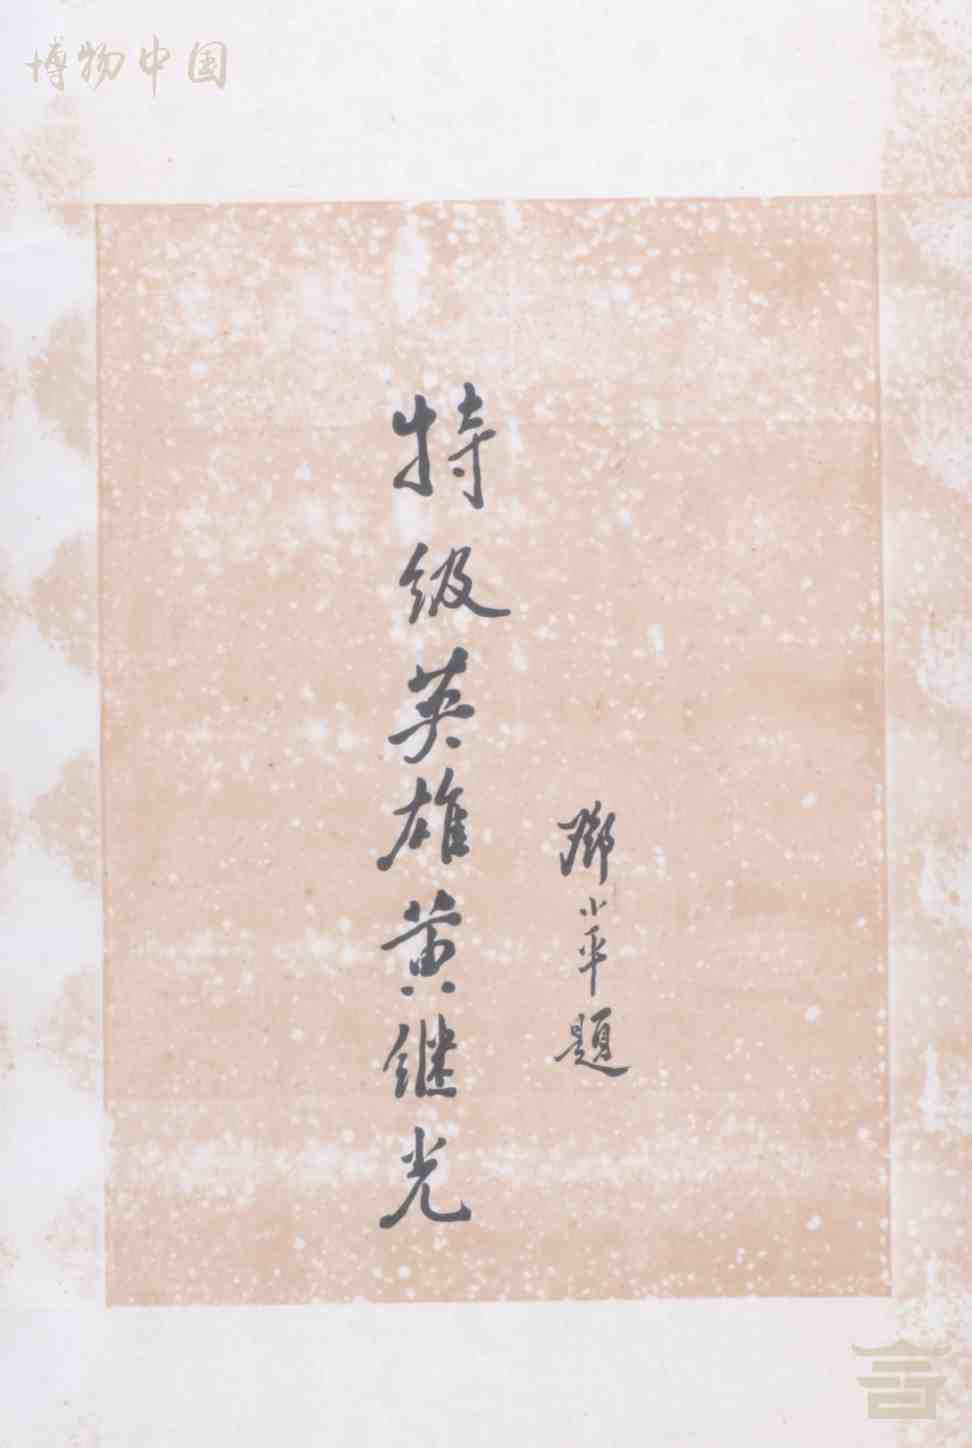 博物中国
特级英雄黄继光
邓小平题